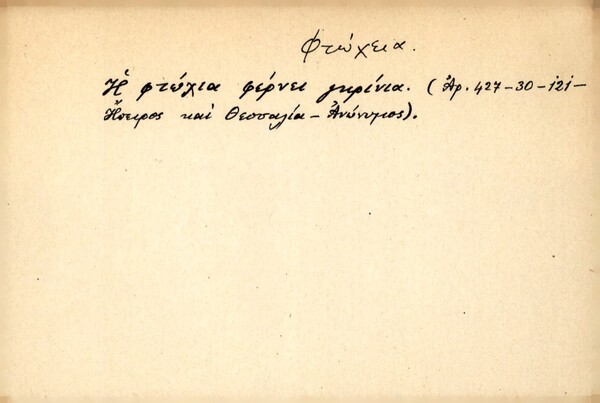 Φτώχεια.
Ἡ φτώχια φέρνει γκρίνια. (Ἀρ. 427-30-121-
Ἤπειρος καὶ Θεσσαλία - Ἀνώνυμος).